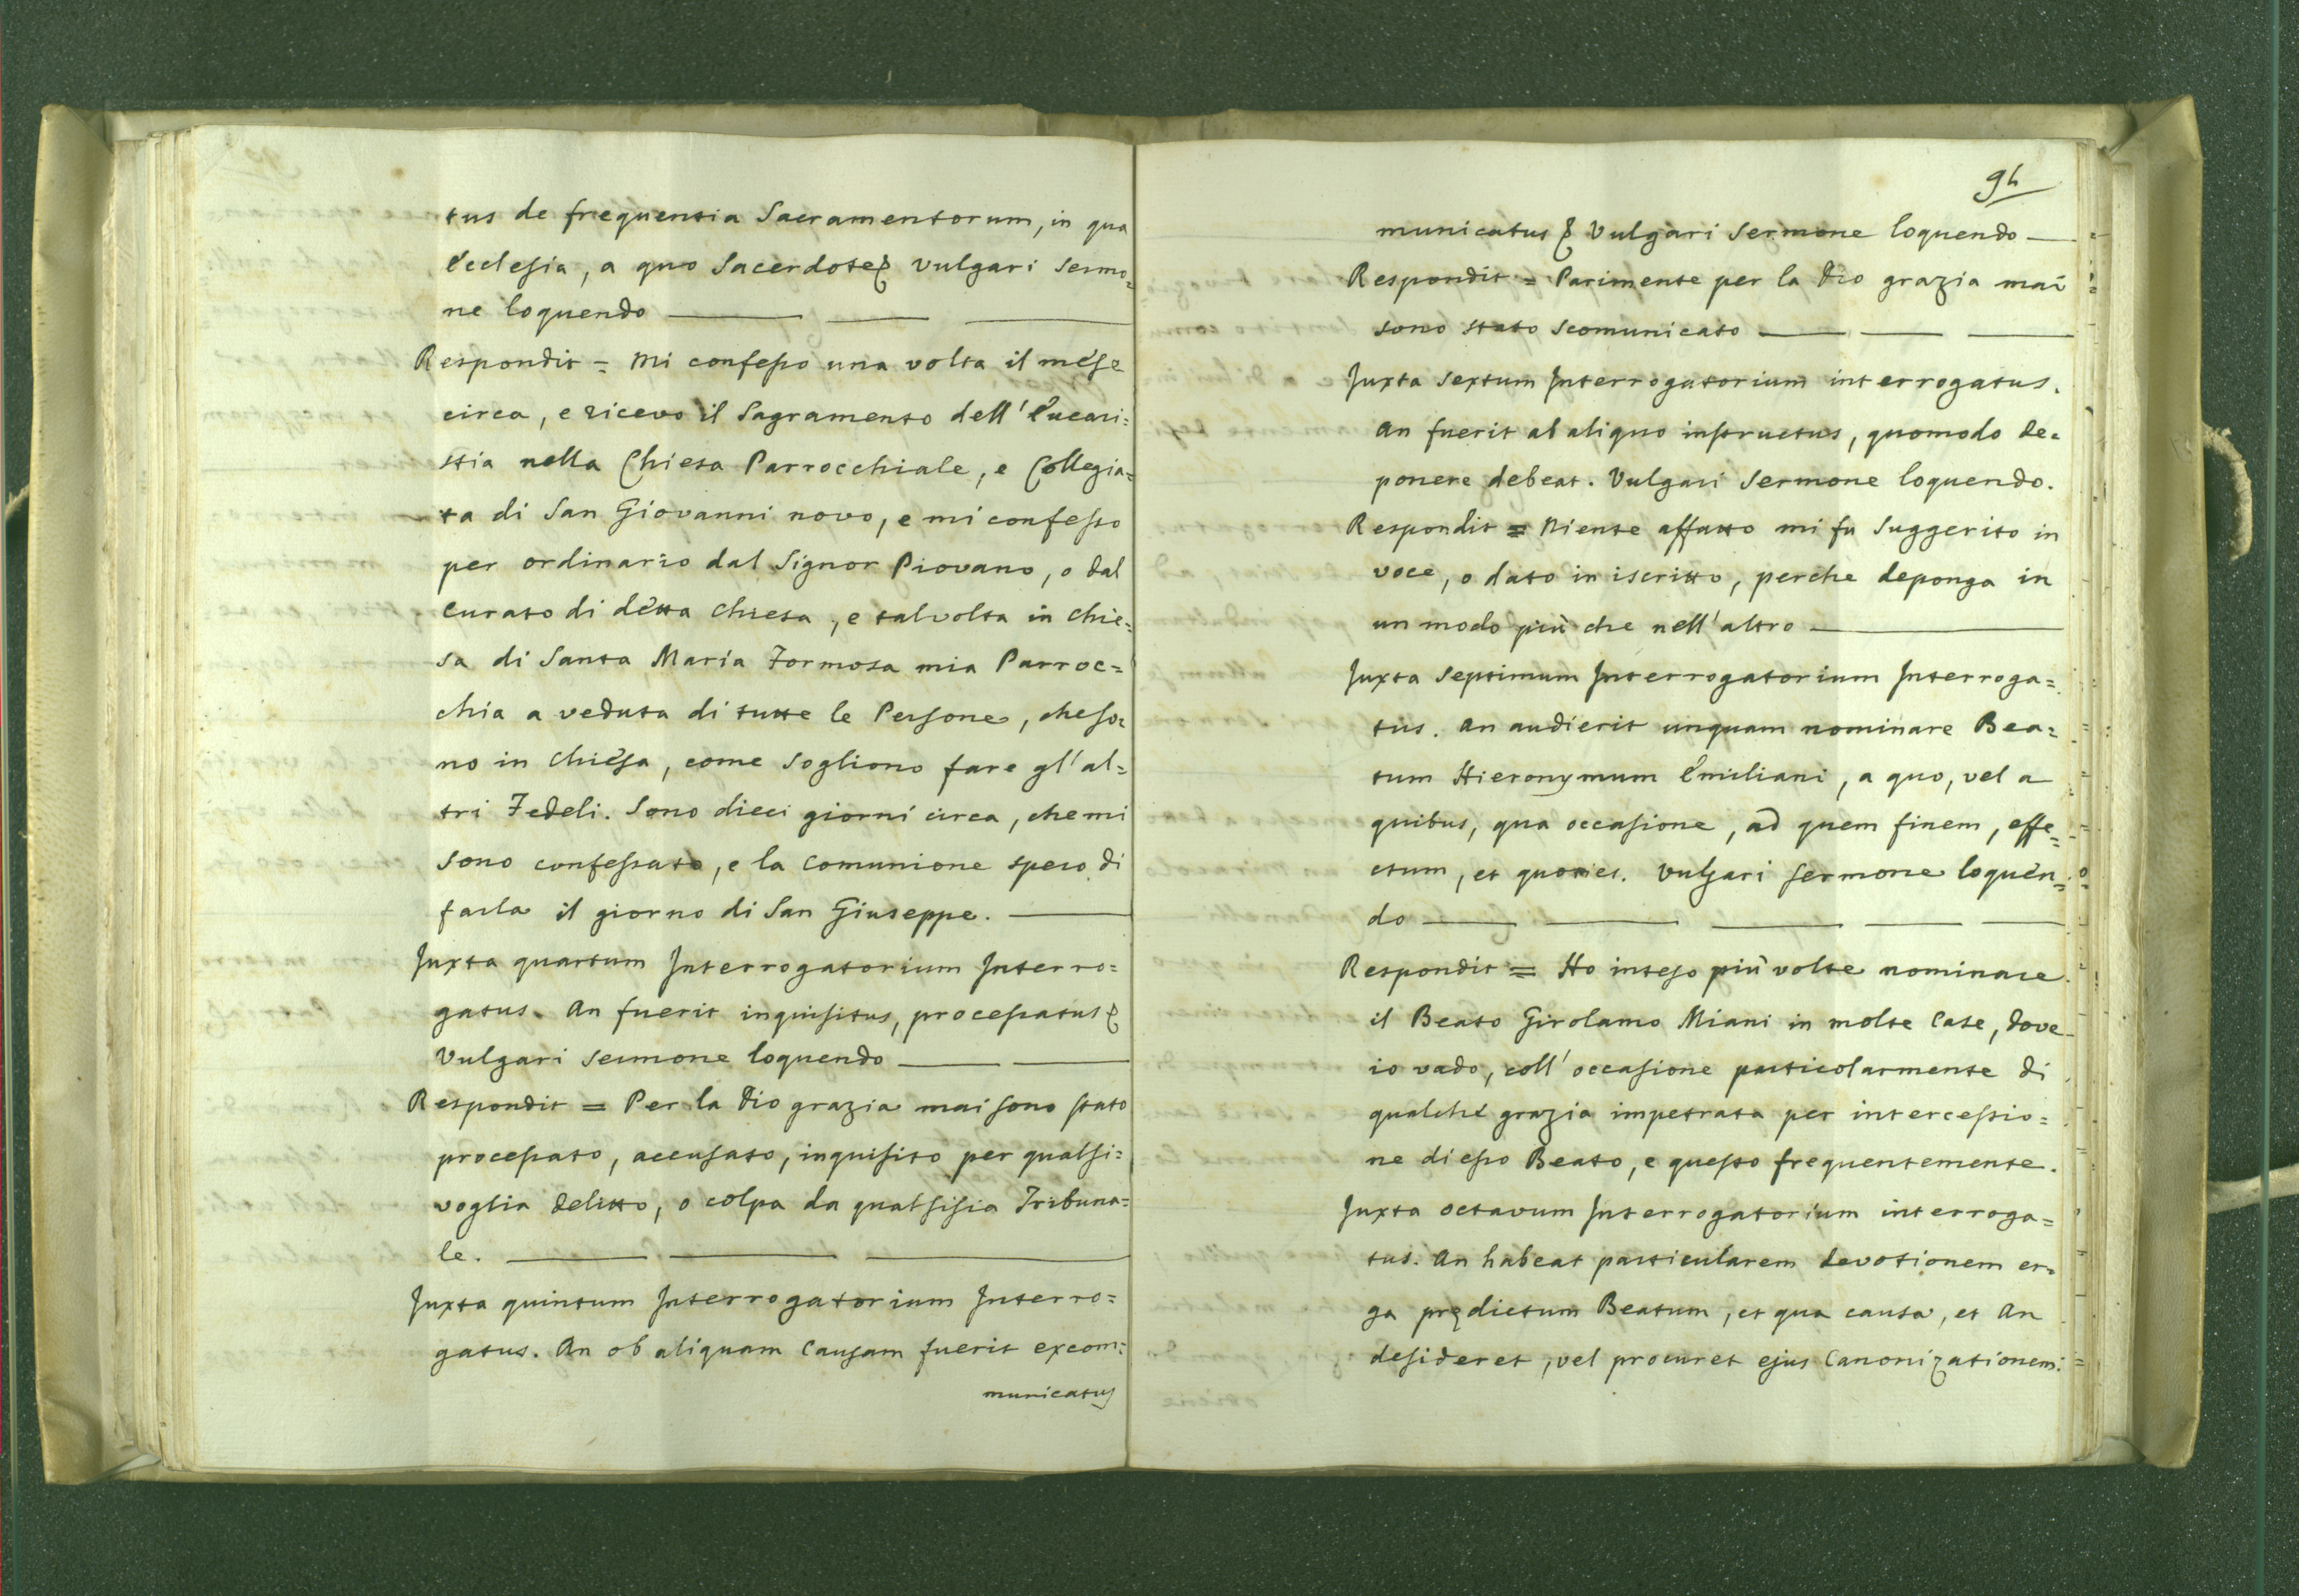 tus de frequentia Sacramentorum, in qua
Ecclesia, a quo Sacerdote & vulgari sermo=
ne loquendo
Respondit = Mi confesso una volta il mese
circa, e ricevo il Sagramento dell'Eucari=
stia nella Chiesa Parrocchiale, e Collegia=
ta di San Giovanni novo, e mi confesso
per ordinario dal Signor Piovano, o dal
Curato di detta Chiesa, e talvolta in Chie=
sa di Santa Maria Formosa mia Parroc=
chia a veduta di tutte le Persone, che so=
no in Chiesa, come sogliono fare gl'al=
tri Fedeli. Sono dieci giorni circa, che mi
sono confessato, e la comunione spero di
farla il giorno di San Giuseppe.
Juxta quartum Interrogatorium Interro=
gatus. An fuerit inquisitus, processatus &
Vulgari sermone loquendo
Respondit = Per la Dio grazia mai sono stato
processato, accusato, inquisito per qualsi=
voglia delitto, o colpa da qualsisia Tribuna=
le.
Juxta quintum Interrogatorium Interro=
gatus. An ob aliquam Causam fuerit excom=
municatus
94
municatus & Vulgari Sermone loquendo
Respondit = Parimente per la Dio grazia mai
sono stato scomunicato
Juxta sextum Interrogatorium interrogatus.
An fuerit ab aliquo instructus, quomodo de=
ponere debeat. Vulgari Sermone loquendo.
Respondit = Niente affatto mi fu suggerito in
voce, o dato in iscritto, perche deponga in
un modo più che nell'altro
Juxta Septimum Interrogatorium Interroga=
tus. An audierit unquam nominare Bea=
tum Hieronymum Emiliani, a quo, vel a
quibus, qua occasione, ad quem finem, effe=
ctum, et quoties. Vulgari sermone loquen=
do
Respondit = Ho inteso più volte nominare
il Beato Girolamo Miani in molte Case, dove
io vado, coll'occasione particolarmente di
qualche grazia impetrata per intercessio=
ne di esso Beato, e questo frequentemente.
Juxta octavum Interrogatorium interroga=
tus. An habeat particularem devotionem er=
ga prędictum Beatum, et qua causa, et An
desideret, vel procuret ejus Canonizationem.